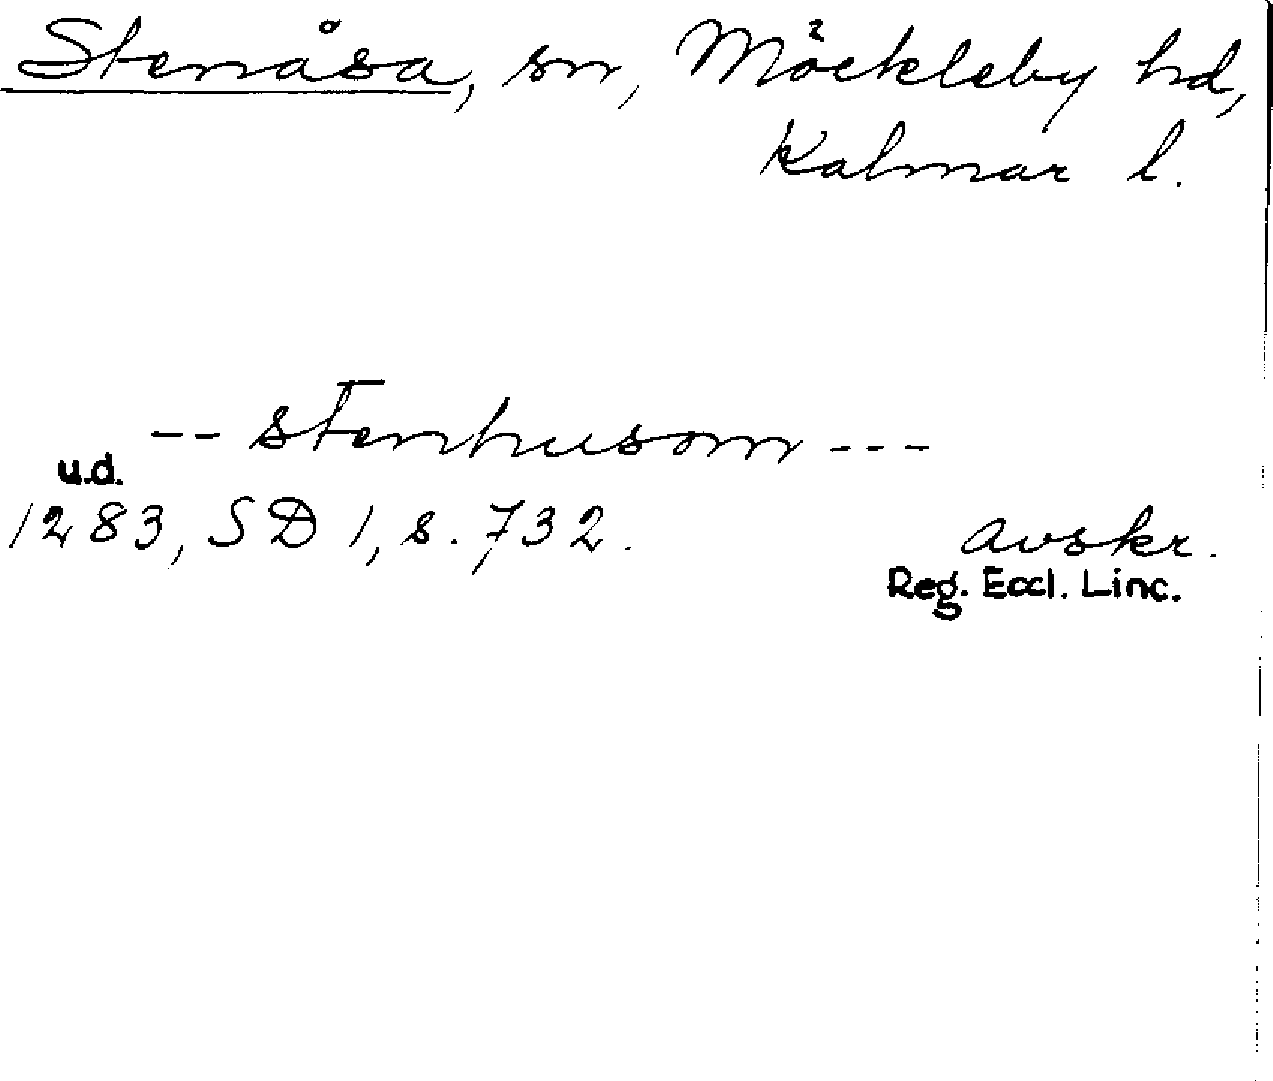 Stenåsa, sn, Möckleby hd,
Kalmar l.
-- stenhusom ---
u.d.
1283, SD 1, s. 732.
avskr.
Reg. Eccl. Linc.